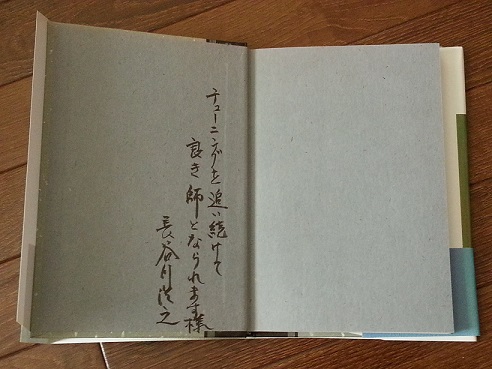 チューニングを追い続けて
良き師となられます様
長谷川浩之